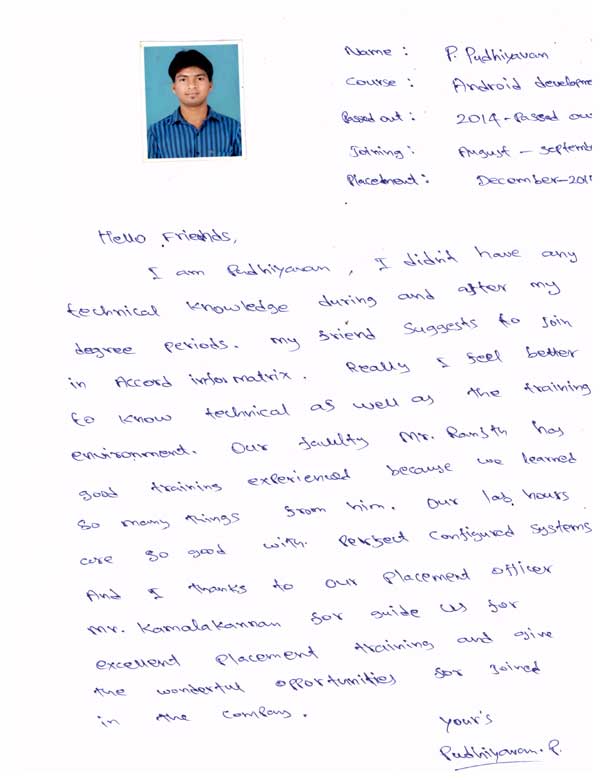 Name : P. Pudhiyavan
Course : Android developme
Passed out : 2014 - Passed ou
Joining : August - septemb
Placement : December-201
Hello Friends,
I am Pudhiyavan, I didn't have any
technical knowledge during and after my
degree periods. my friend suggests to join
in Accord informatrix. Really I feel better
to know technical as well as the training
environment. Our faculty Mr. Ranjth has
good training experienced because we learned
so many things from him. Our lab hours
are so good with perfect configured systems
And I thanks to our placement officer
Mr. Kamalakannan for guide us for
excellent placement training and give
the wonderful opportunities for joined
in the company.
your's
Pudhiyavan.P.